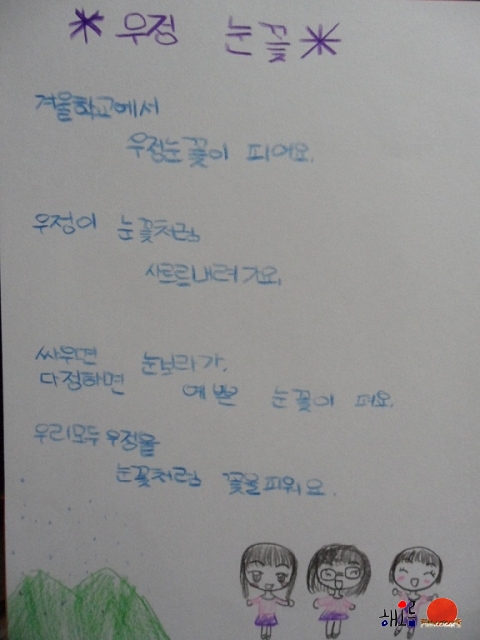 * 우정 눈꽃 *
겨울학교에서
우정눈꽃이 피어요.
우정이 눈꽃처럼
사르르내려가요.
싸우면 눈보라가.
다정하면 예쁜 눈꽃이 펴요.
우리모두우정을
눈꽃처럼 꽃을피워요.
해오름